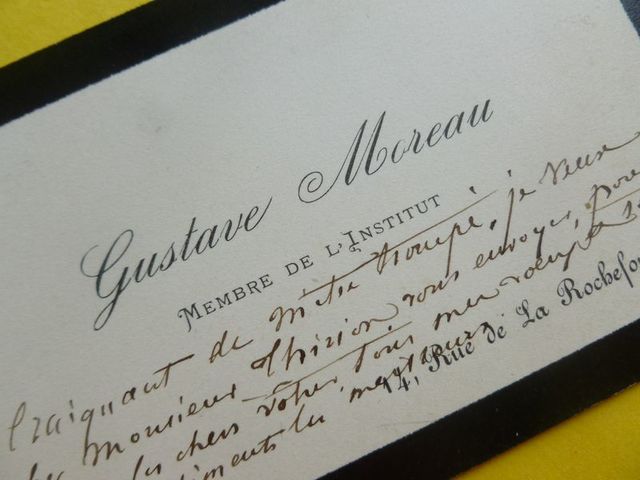 Gustave Moreau
MEMBRE DE L'INSTITUT
Craignant de m'être trompé, je veux
Monsieur Thirion, vous envoyer, pour
chers votre, tous mes
les meilleurs
14, Rue de La Rochefou